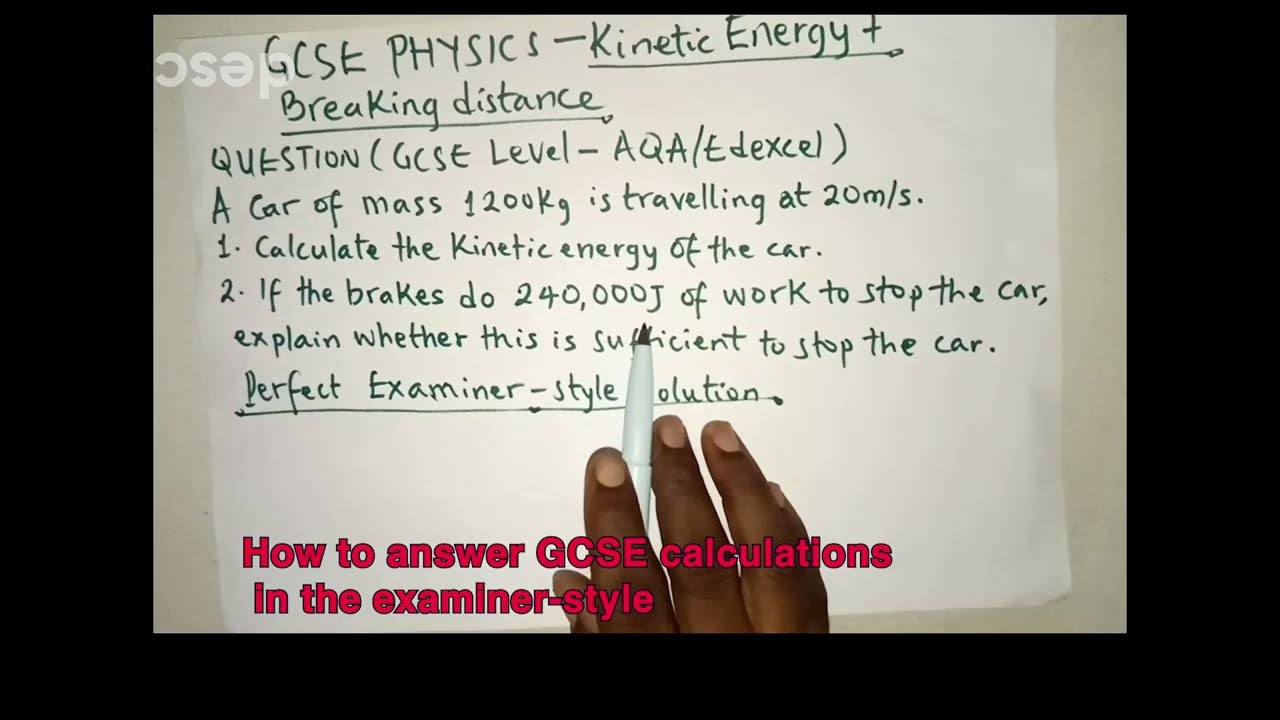 GCSE PHYSICS - Kinetic Energy +
Breaking distance
QUESTION (GCSE Level - AQA/Edexcel)
A car of mass 1200kg is travelling at 20m/s.
1. Calculate the Kinetic energy of the car.
2. If the brakes do 240,000J of work to stop the car,
explain whether this is sufficient to stop the car.
Perfect Examiner-style olution
How to answer GCSE calculations
in the examiner-style